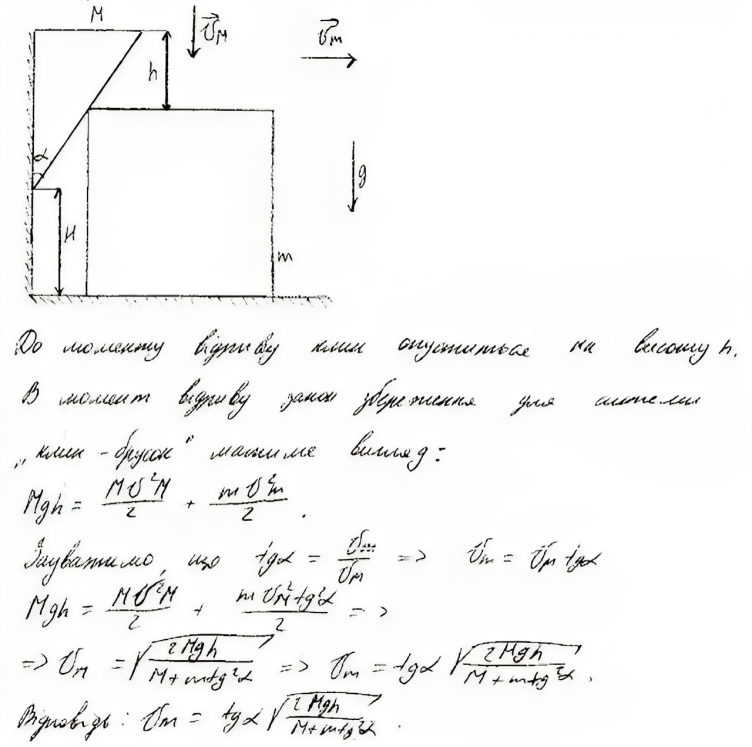 M
v⃗_M
v⃗_m
h
α
g
H
m
До моменту відриву клин опуститься на висоту h.
В момент відриву закон збереження для системи
„клин - брусок" матиме вигляд:
Mgh = Mv²_M/2 + mv²_m/2 .
Зауважимо, що tgα = v_m/v_M => v_m = v_M tgα
Mgh = Mv²_M/2 + mv²_M tg²α/2 =>
=> v_M = √(2Mgh/(M+mtg²α)) => v_m = tgα √(2Mgh/(M+mtg²α)).
Відповідь: v_m = tgα √(2Mgh/(M+mtg²α)).